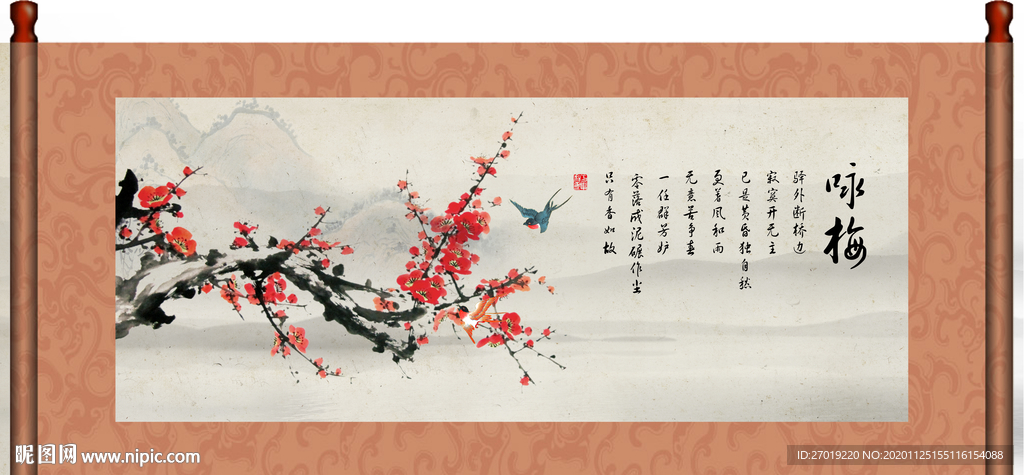 咏梅
驿外断桥边
寂寞开无主
已是黄昏独自愁
更着风和雨
无意苦争春
一任群芳妒
零落成泥碾作尘
只有香如故
昵图网 www.nipic.com
ID:27019220 NO:20201125155116154088